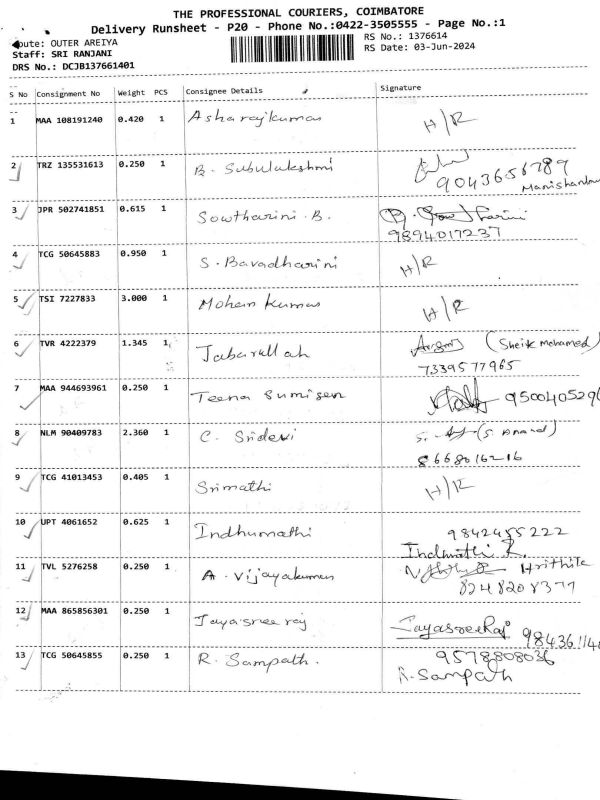 THE PROFESSIONAL COURIERS, COIMBATORE
Delivery Runsheet - P20 - Phone No.:0422-3505555 - Page No.:1
oute: OUTER AREIYA
RS No.: 1376614
Staff: SRI RANJANI
RS Date: 03-Jun-2024
DRS No.: DCJB137661401
S No Consignment No Weight PCS Consignee Details Signature
1 MAA 108191240 0.420 1 Asharajkumar H/R
2 TRZ 135531613 0.250 1 B. Subulakshmi
9043656789
3 JPR 502741851 0.615 1 Sowtharini.B.
9894017237
4 TCG 50645883 0.950 1 S. Bavadharini H/R
5 TSI 7227833 3.000 1 Mohan Kumar H/R
6 TVR 4222379 1.345 1 Jabarullah (Sheik mohamed)
7339577965
7 MAA 944693961 0.250 1 Teena Sumisen 950040529
8 NLM 90409783 2.360 1 C. Sridevi (S. Anand)
8668016216
9 TCG 41013453 0.405 1 Srimathi H/R
10 UPT 4061652 0.625 1 Indhumathi 9842455222
Indhumathi R.
11 TVL 5276258 0.250 1 A. Vijayakumar Hrithik
8248208377
12 MAA 865856301 0.250 1 Jayasree raj JayasreeRaj 984361140
13 TCG 50645855 0.250 1 R. Sampath. 9578808036
R. Sampath